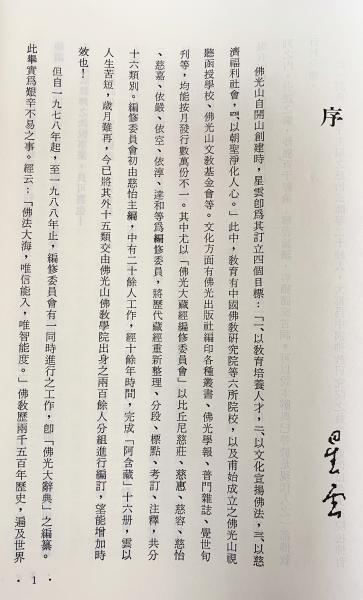 序
星雲
佛光山自開山創建時，星雲卽爲其訂立四個目標：「一、以敎育培養人才，二、以文化宣揚佛法，三、以慈
濟福利社會，四、以朝聖淨化人心。」此中，敎育有中國佛敎研究院等六所院校，以及甫始成立之佛光山視
聽函授學校、佛光山文敎基金會等。文化方面有佛光出版社編印各種叢書、佛光學報、普門雜誌、覺世旬
刊等，均能按月發行數萬份不一。其中尤以「佛光大藏經編修委員會」以比丘尼慈莊、慈惠、慈容、慈怡
、慈嘉、依嚴、依空、依淳、達和等爲編修委員，將歷代藏經重新整理、分段、標點、考訂、注釋，共分
十六類別。編修委員會初由慈怡主編，中有二十餘人工作，經十餘年時間，完成「阿含藏」十六册，雲以
人生苦短，歲月難再，今已將其外十五類交由佛光山佛敎學院出身之兩百餘人分組進行編訂，望能增加時
效也！
但自一九七八年起，至一九八八年止，編修委員會有一同時進行之工作，卽「佛光大辭典」之編纂。
此舉實爲艱辛不易之事。經云：「佛法大海，唯信能入，唯智能度。」佛敎歷兩千五百年歷史，遍及世界
· 1 ·